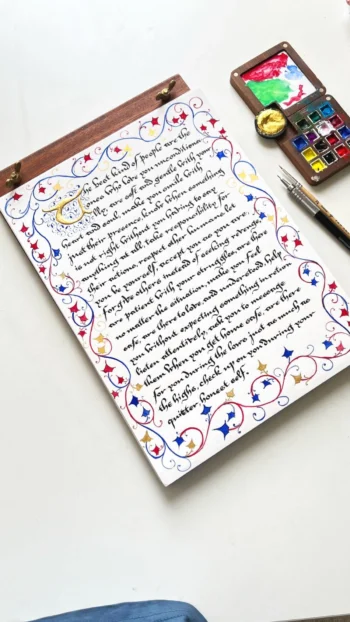 The best kind of people are the
ones who love you unconditionally,
are soft and gentle with your
heart and soul, make you smile with
just their presence, know when something
is not right without you having to say
anything at all, take responsibility for
their actions, respect other humans, let
you be yourself, accept you as you are,
forgive others instead of seeking revenge,
are patient with your struggles, are there
no matter the situation, make you feel
safe, are there to love and understand, help
you without expecting something in return,
listen attentively, ask you to message
them when you get home safe, are there
for you during the lows just as much as
the highs, check up on you during your
quieter, honest self.